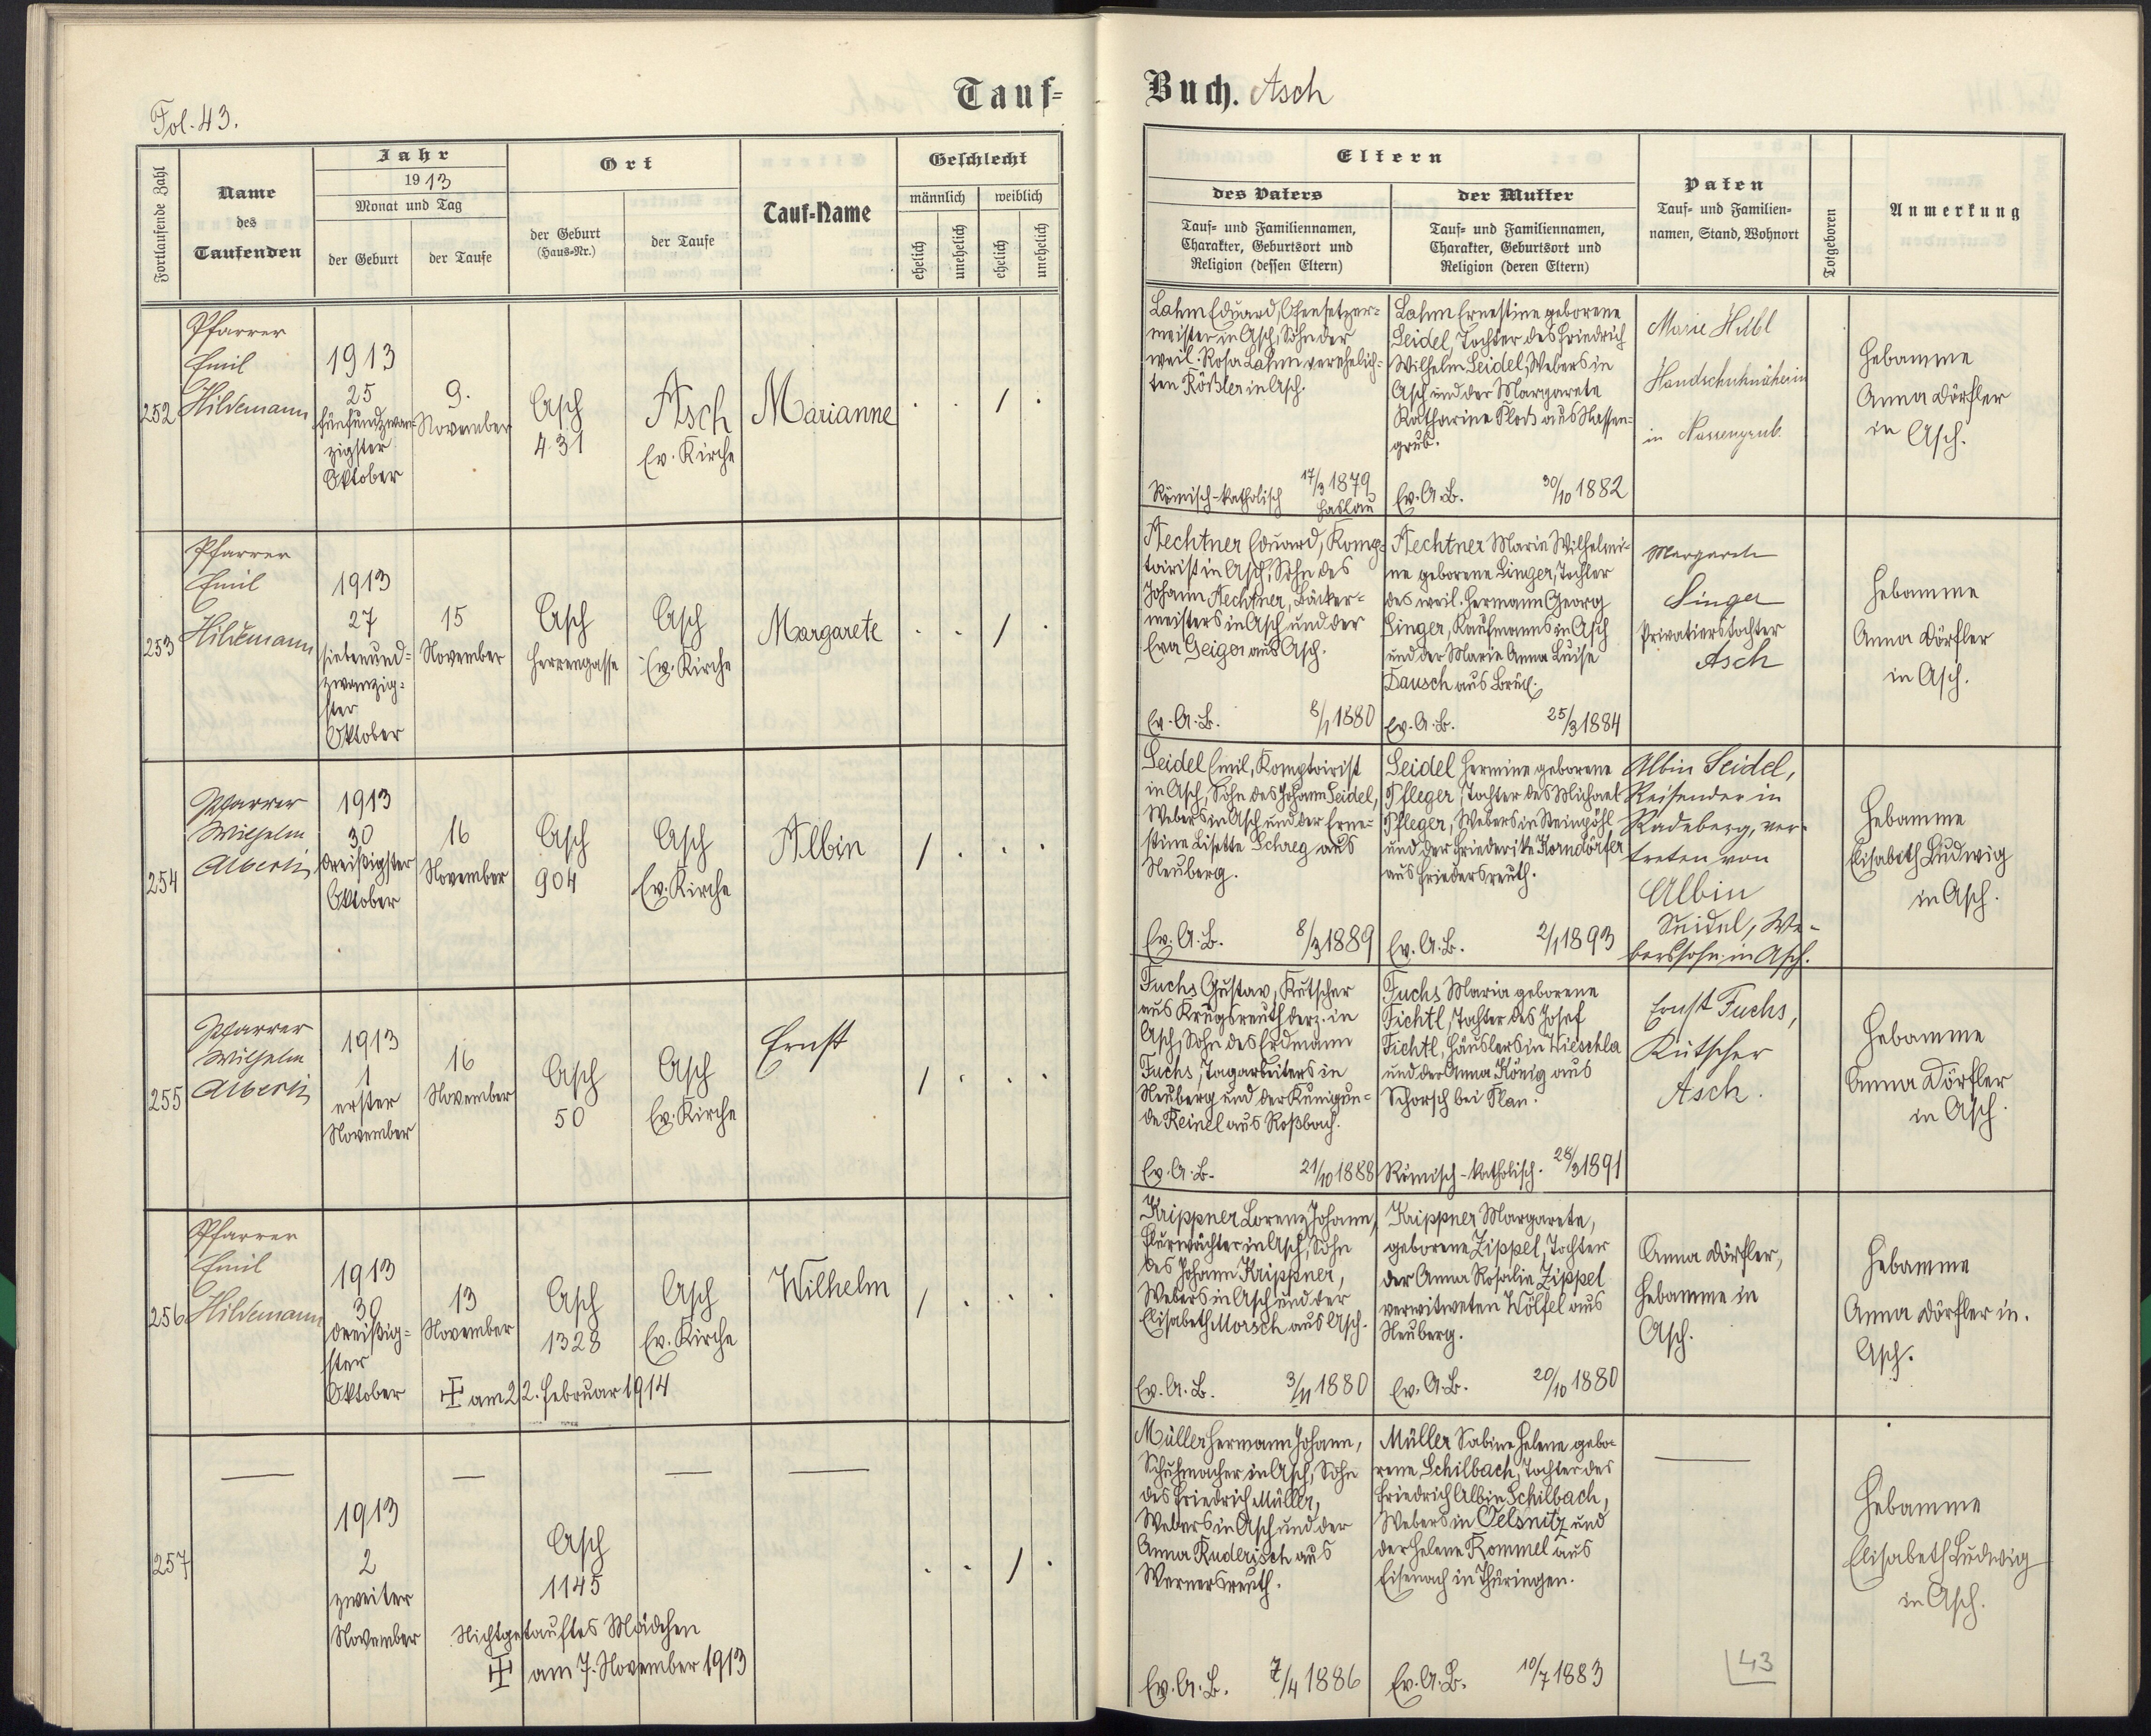 Fol. 43.
Tauf=
Buch. Asch
Fortlaufende Zahl
Name
des
Taufenden
Jahr
1913
Monat und Tag
der Geburt
der Taufe
Ort
der Geburt
(Haus=Nr.)
der Taufe
Tauf=Name
Geschlecht
männlich
weiblich
ehelich
unehelich
ehelich
unehelich
Eltern
des Vaters
Tauf= und Familiennamen,
Charakter, Geburtsort und
Religion (dessen Eltern)
der Mutter
Tauf= und Familiennamen,
Charakter, Geburtsort und
Religion (deren Eltern)
Paten
Tauf= und Familien=
namen, Stand, Wohnort
Totgeboren
Anmerkung
252
Pfarrer
Emil
Hildemann
1913
25
fünfundzwan=
zigster
Oktober
9.
November
Asch
431
Asch
Ev. Kirche
Marianne
. . / .
Lahm Eduard, Ofensetzer=
meister in Asch, Sohn der
weil. Rosa Lahm verehelich=
ten Rößler in Asch.
Römisch-katholisch
17/3 1879
Haslau
Lahm Ernestine geborene
Seidel, Tochter des Friedrich
Wilhelm Seidel, Webers in
Asch und der Margarete
Katharine Ploß aus Nassen=
grub.
Ev. A. B.
30/10 1882
Marie Hilbl
Handschuhnäherin
in Nassengrub.
Hebamme
Anna Dörfler
in Asch.
253
Pfarrer
Emil
Hildemann
1913
27
siebenund=
zwanzig=
ster
Oktober
15
November
Asch
Herrengasse
Asch
Ev. Kirche
Margarete
. . / .
Aechtner Eduard, Komp=
toirist in Asch, Sohn des
Johann Aechtner, Bäcker=
meisters in Asch und der
Eva Geiger aus Asch.
Ev. A. B.
8/1 1880
Aechtner Marie Wilhelmi=
ne geborene Singer, Tochter
des weil. Hermann Georg
Singer, Kaufmanns in Asch
und der Marie Anna Luise
Dausch aus Brück.
Ev. A. B.
25/3 1884
Margarete
Singer
Privatierstochter
Asch
Hebamme
Anna Dörfler
in Asch.
254
Pfarrer
Wilhelm
Alberti
1913
30
dreißigster
Oktober
16
November
Asch
904
Asch
Ev. Kirche
Albin
/ . . .
Seidel Emil, Komptoirist
in Asch, Sohn des Johann Seidel,
Webers in Asch und der Erne=
stine Lisette Schreg aus
Neuberg.
Ev. A. B.
8/3 1889
Seidel Hermine geborene
Pfleger, Tochter des Michael
Pfleger, Webers in Steinpöhl
und der Friederike Korndörfer
aus Friedersreuth.
Ev. A. B.
2/1 1893
Albin Seidel,
Reisender in
Radeberg, ver=
treten von
Albin
Seidel, We=
berssohn in Asch.
Hebamme
Elisabeth Ludwig
in Asch.
255
Pfarrer
Wilhelm
Alberti
1913
1
erster
November
16
November
Asch
50
Asch
Ev. Kirche
Ernst
/ . . .
Fuchs Gustav, Kutscher
aus Krugsreuth derz. in
Asch, Sohn des Erdmann
Fuchs, Tagarbeiters in
Neuberg und der Kunigun=
de Reinel aus Roßbach.
Ev. A. B.
21/10 1888
Fuchs Maria geborene
Fichtl, Tochter des Josef
Fichtl, Häuslers in Wieschla
und der Anna König aus
Schorsch bei Plan.
Römisch-katholisch.
28/3 1891
Ernst Fuchs,
Kutscher
Asch.
Hebamme
Anna Dörfler
in Asch.
256
Pfarrer
Emil
Hildemann
1913
30
dreißig=
ster
Oktober
13
November
Asch
1328
Asch
Ev. Kirche
Wilhelm
/ . . .
am 22. Februar 1914
Krippner Lorenz Johann,
Flurwächter in Asch, Sohn
des Johann Krippner,
Webers in Asch und der
Elisabeth Morsch aus Asch.
Ev. A. B.
3/11 1880
Krippner Margarete,
geborene Zippel, Tochter
der Anna Rosalie Zippel
verwitweten Wölfel aus
Neuberg.
Ev. A. B.
20/10 1880
Anna Dörfler,
Hebamme in
Asch.
Hebamme
Anna Dörfler in.
Asch.
257
1913
2
zweiter
November
Asch
1145
. . / .
Nichtgetauftes Mädchen
am 7. November 1913
Müller Hermann Johann,
Schuhmacher in Asch, Sohn
des Friedrich Müller,
Webers in Asch und der
Anna Ruderisch aus
Wernersreuth.
Ev. A. B.
7/4 1886
Müller Sabine Helene gebo=
rene Schilbach, Tochter des
Friedrich Albin Schilbach,
Webers in Oelsnitz und
der Helene Rommel aus
Eisenach in Thüringen.
Ev. A. B.
10/7 1883
Hebamme
Elisabeth Ludwig
in Asch.
43